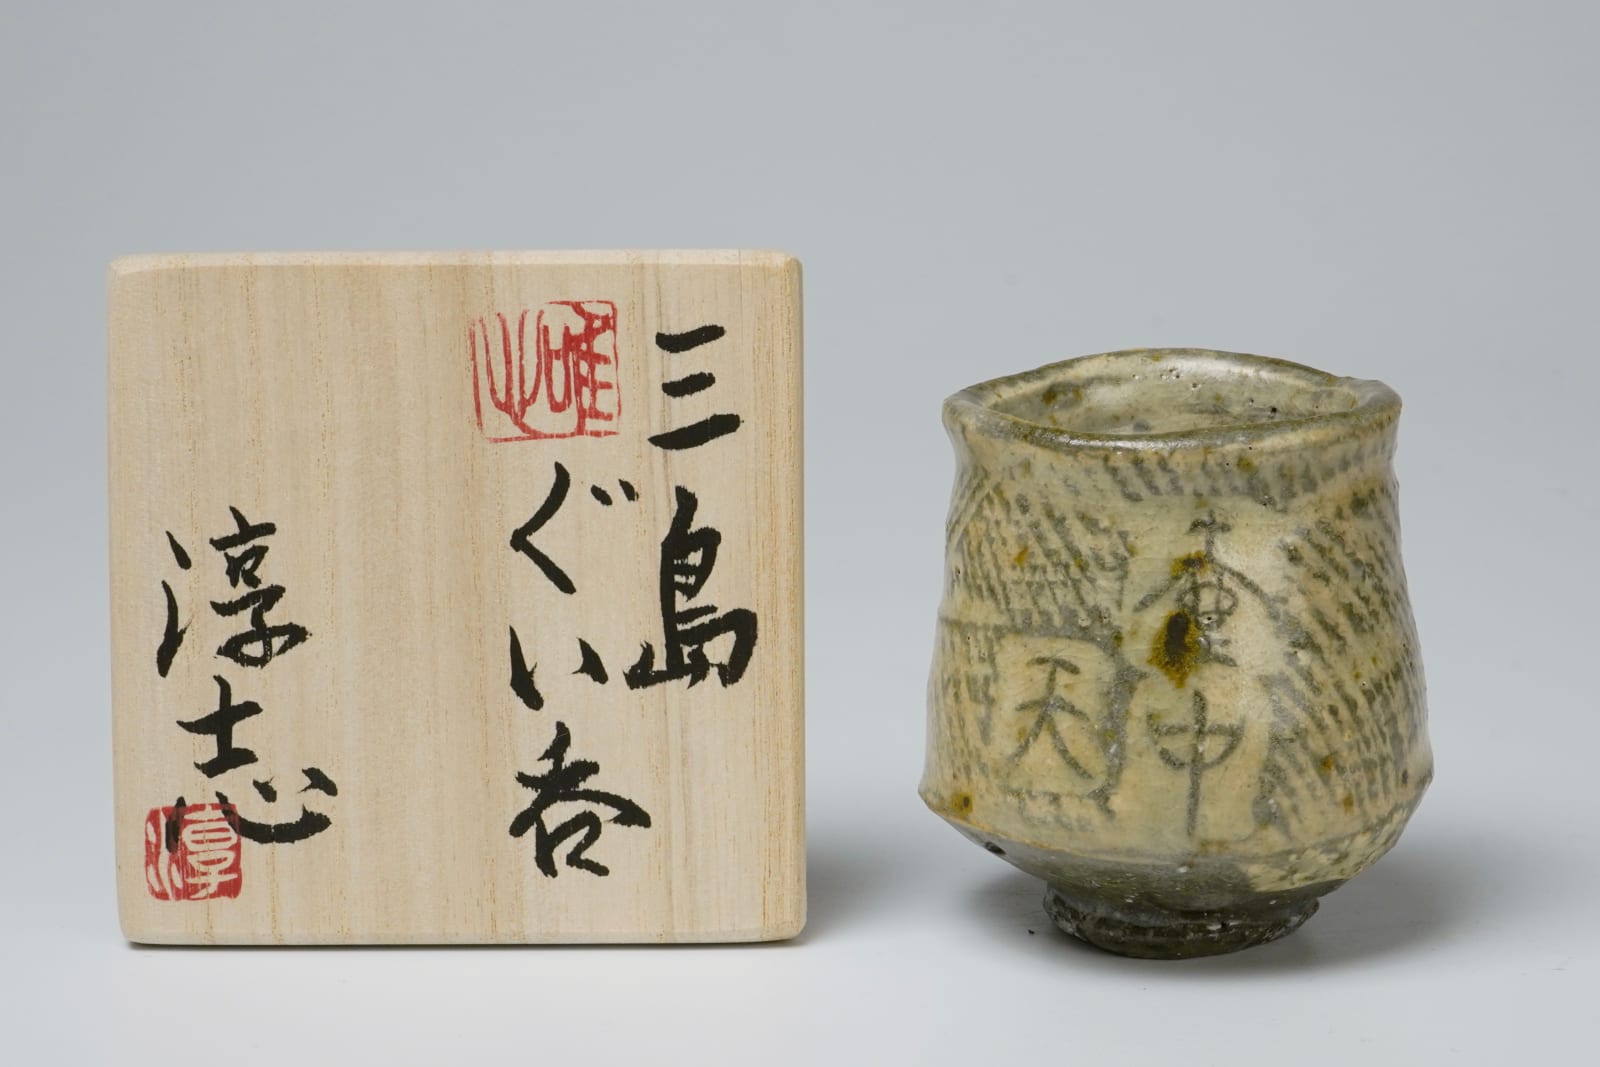 三島
ぐい呑
淳士志
淳
天
中